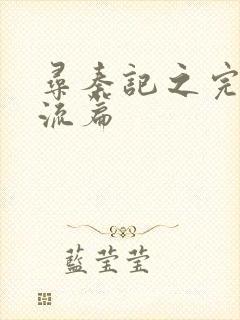 尋秦記之完
流篇
藍莹莹